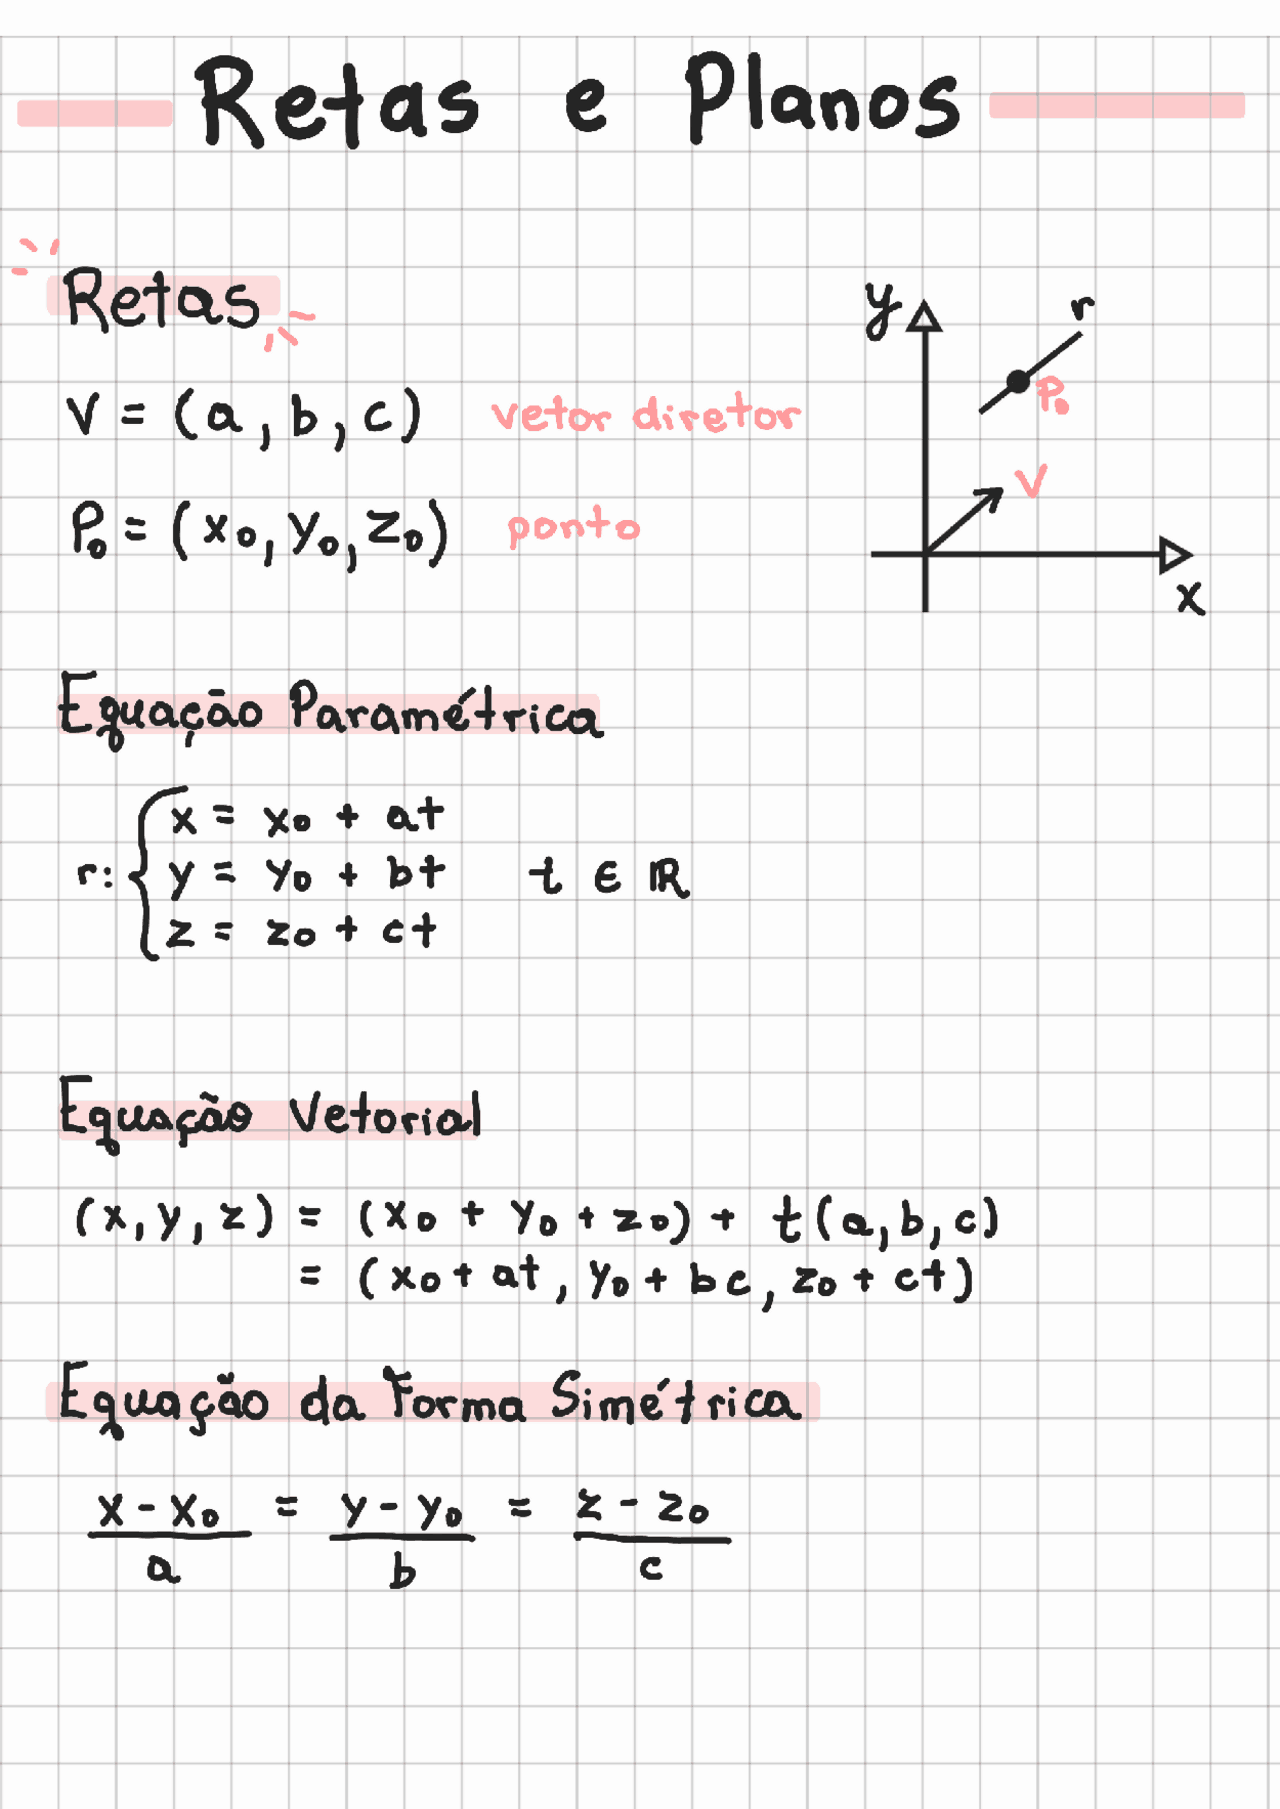 Retas e Planos
Retas
V = (a, b, c) vetor diretor
P₀ = (x₀, y₀, z₀) ponto
y
r
P₀
V
x
Equação Paramétrica
x = x₀ + at
r: { y = y₀ + bt t ∈ ℝ
z = z₀ + ct
Equação Vetorial
(x, y, z) = (x₀ + y₀ + z₀) + t(a, b, c)
= (x₀ + at, y₀ + bc, z₀ + ct)
Equação da Forma Simétrica
x - x₀ = y - y₀ = z - z₀
a b c